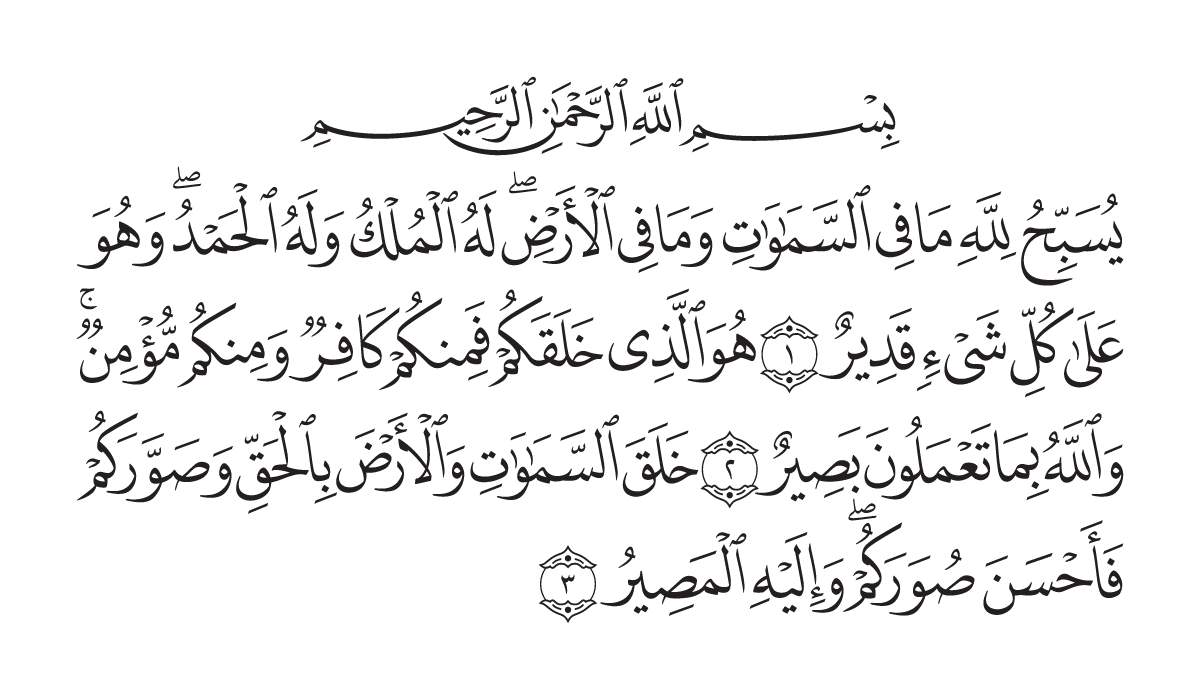 بِسْمِ ٱللَّهِ ٱلرَّحْمَٰنِ ٱلرَّحِيمِ
يُسَبِّحُ لِلَّهِ مَا فِى ٱلسَّمَٰوَٰتِ وَمَا فِى ٱلْأَرْضِ ۖ لَهُ ٱلْمُلْكُ وَلَهُ ٱلْحَمْدُ ۖ وَهُوَ
عَلَىٰ كُلِّ شَىْءٍ قَدِيرٌ ١ هُوَ ٱلَّذِى خَلَقَكُمْ فَمِنكُمْ كَافِرٌ وَمِنكُم مُّؤْمِنٌ ۚ
وَٱللَّهُ بِمَا تَعْمَلُونَ بَصِيرٌ ٢ خَلَقَ ٱلسَّمَٰوَٰتِ وَٱلْأَرْضَ بِٱلْحَقِّ وَصَوَّرَكُمْ
فَأَحْسَنَ صُوَرَكُمْ ۖ وَإِلَيْهِ ٱلْمَصِيرُ ٣